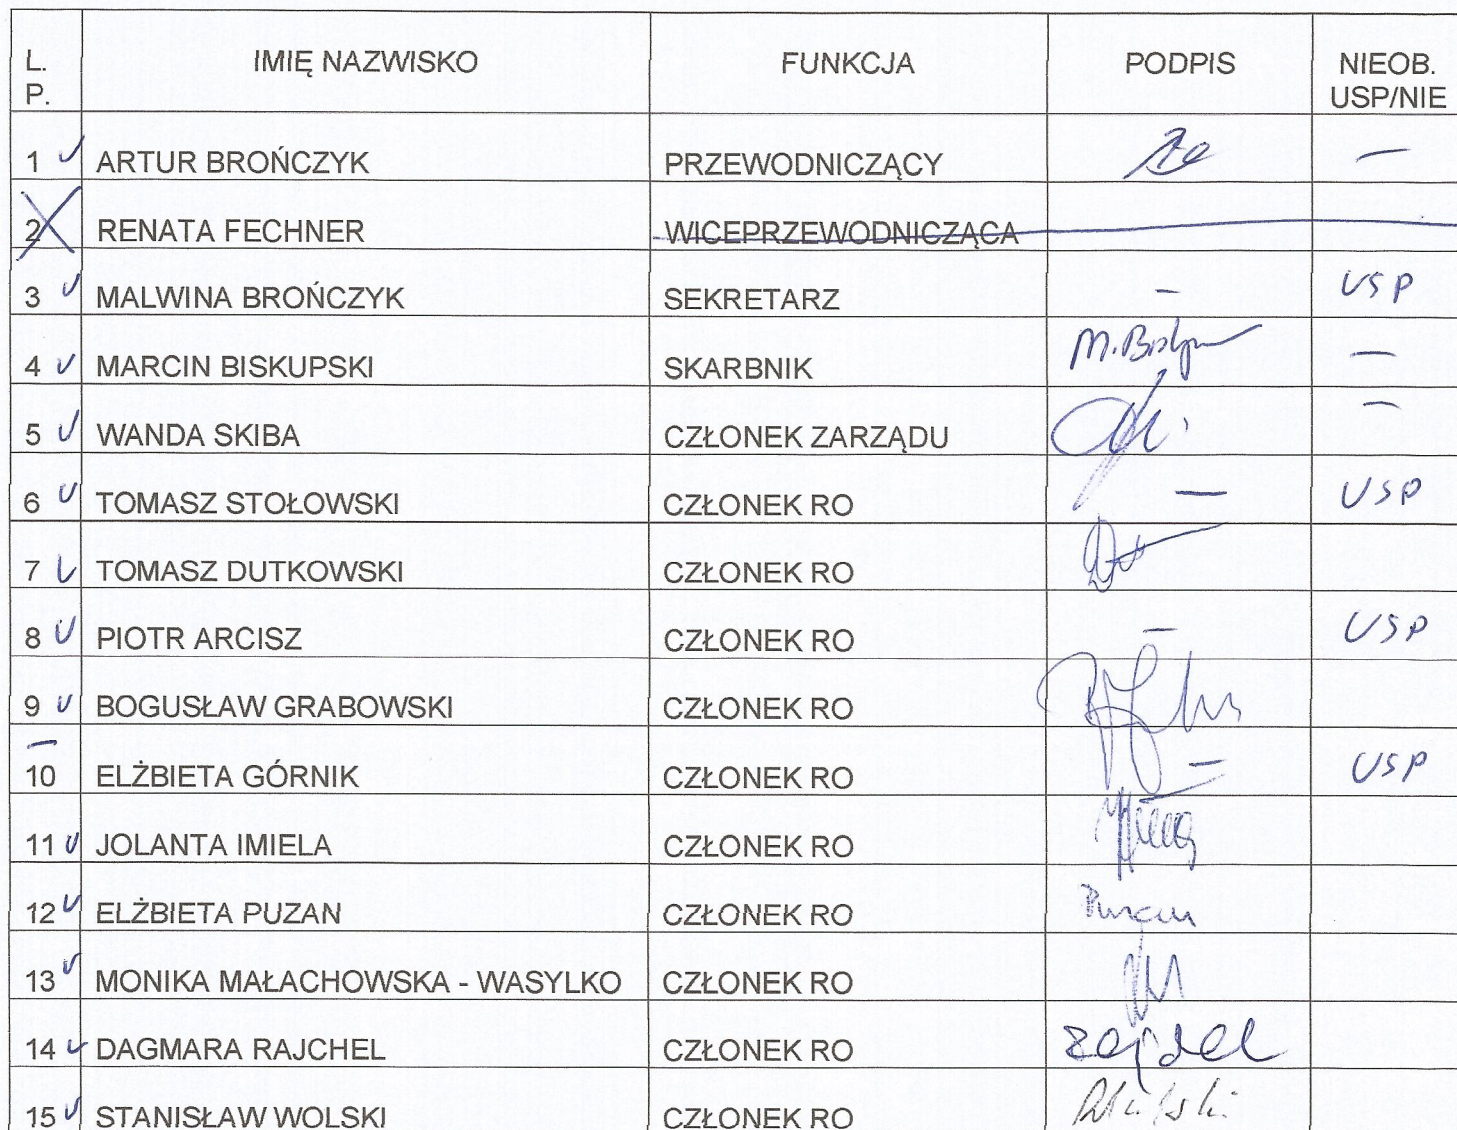 L. P. IMIĘ NAZWISKO FUNKCJA PODPIS NIEOB. USP/NIE
1 ARTUR BROŃCZYK PRZEWODNICZĄCY —
2 RENATA FECHNER WICEPRZEWODNICZĄCA
3 MALWINA BROŃCZYK SEKRETARZ — USP
4 MARCIN BISKUPSKI SKARBNIK —
5 WANDA SKIBA CZŁONEK ZARZĄDU —
6 TOMASZ STOŁOWSKI CZŁONEK RO — USP
7 TOMASZ DUTKOWSKI CZŁONEK RO
8 PIOTR ARCISZ CZŁONEK RO — USP
9 BOGUSŁAW GRABOWSKI CZŁONEK RO
10 ELŻBIETA GÓRNIK CZŁONEK RO — USP
11 JOLANTA IMIELA CZŁONEK RO
12 ELŻBIETA PUZAN CZŁONEK RO
13 MONIKA MAŁACHOWSKA - WASYLKO CZŁONEK RO
14 DAGMARA RAJCHEL CZŁONEK RO
15 STANISŁAW WOLSKI CZŁONEK RO